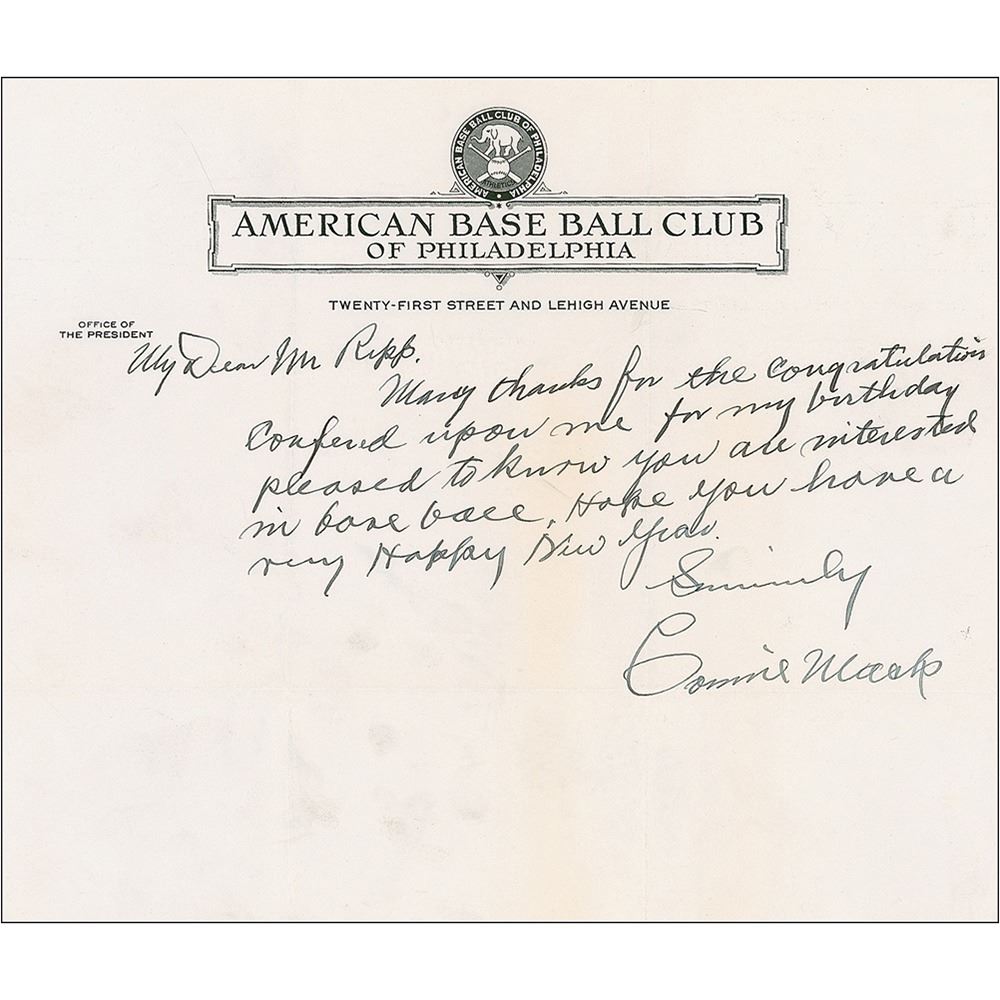 AMERICAN BASE BALL CLUB OF PHILADELPHIA
ATHLETICS
AMERICAN BASE BALL CLUB
OF PHILADELPHIA
TWENTY-FIRST STREET AND LEHIGH AVENUE
OFFICE OF
THE PRESIDENT
My Dear Mr Ripp.
Many thanks for the congratulations
confered upon me for my birthday
pleased to know you are interested
in base ball. Hope you have a
very Happy New Year.
Sincerely
Connie Mack